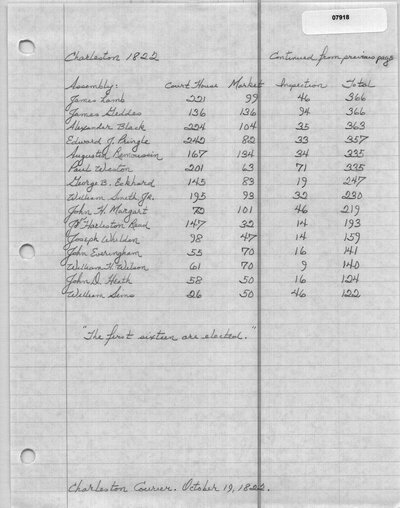 07918
Charleston 1822 Continued from previous page
Assembly: Court House Market Inspection Total
James Lamb 221 99 46 366
James Geddes 136 136 94 366
Alexander Black 224 104 35 363
Edward J. Pringle 242 82 33 357
Augustus Remoussin 167 134 34 335
Paul Weston 201 63 71 335
George B. Eckhard 145 83 19 247
William Smith Jr. 195 93 32 230
John H. Margart 72 101 46 219
Harleston Read 147 32 14 193
Joseph Whilden 98 47 14 159
John Everingham 55 70 16 141
William H. Wilson 61 70 9 140
John D. Heath 58 50 16 124
William Sims 26 50 46 122
"The first sixteen are elected."
Charleston Courier. October 19, 1822.